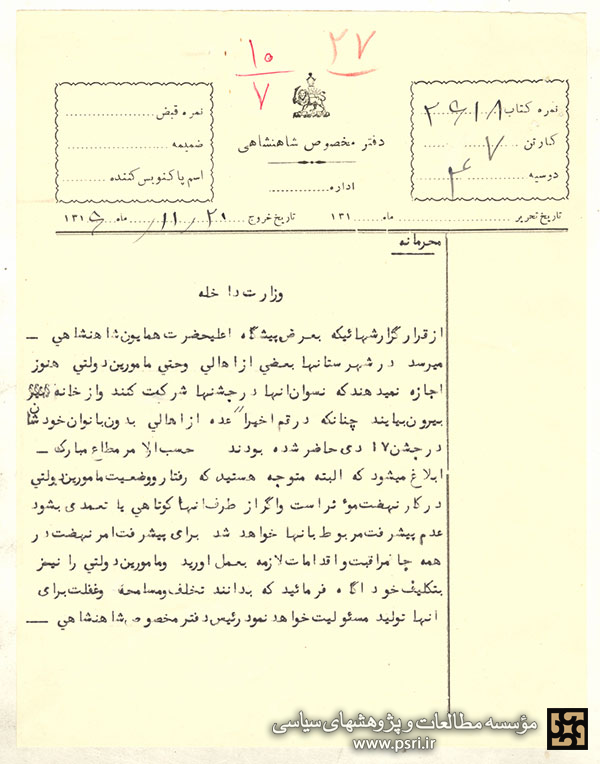 ۱۰
۷
۲۷
نمره کتاب ۲۶۱۸
کارتن ۷
دوسیه ۴
دفتر مخصوص شاهنشاهی
اداره
نمره قبض
ضمیمه
اسم پاکنویس کننده
تاریخ تحریر ماه ۱۳۱
تاریخ خروج ۲۰ ۱۱ ماه ۱۳۱۶
محرمانه
وزارت داخله
از قرار گزارشهائیکه بعرض پیشگاه اعلیحضرت همایون شاهنشاهي ــ
میرسد در شهرستانها بعضي از اهالي وحتي مامورین دولتي هنوز
اجازه نمیدهند که نسوان انها در جشنها شرکت کنند و از خانه
بیرون بیایند چنانکه در قم اخیراً عده از اهالي بدون بانوان خودشان
در جشن ۱۷ دي حاضر شده بودند حسب الامر مطاع مبارک ــ
ابلاغ میشود که البته متوجه هستید که رفتار ووضعیت مامورین دولتي
در کار نهضت موٴثر است واگر از طرف انها کوتاهي یا تعمدي بشود
عدم پیشرفت مربوط بانها خواهد شد برای پیشرفت امر نهضت در
همه جا مراقبت و اقدامات لازمه بعمل اورید ومامورین دولتي را نیز
بتکلیف خود اگاه فرمائید که بدانند تخلف ومسامحه وغفلت برای
انها تولید مسئولیت خواهد نمود رئیس دفتر مخصوص شاهنشاهي ــ
مؤسسه مطالعات و پژوهشهای سیاسی
www.psri.ir